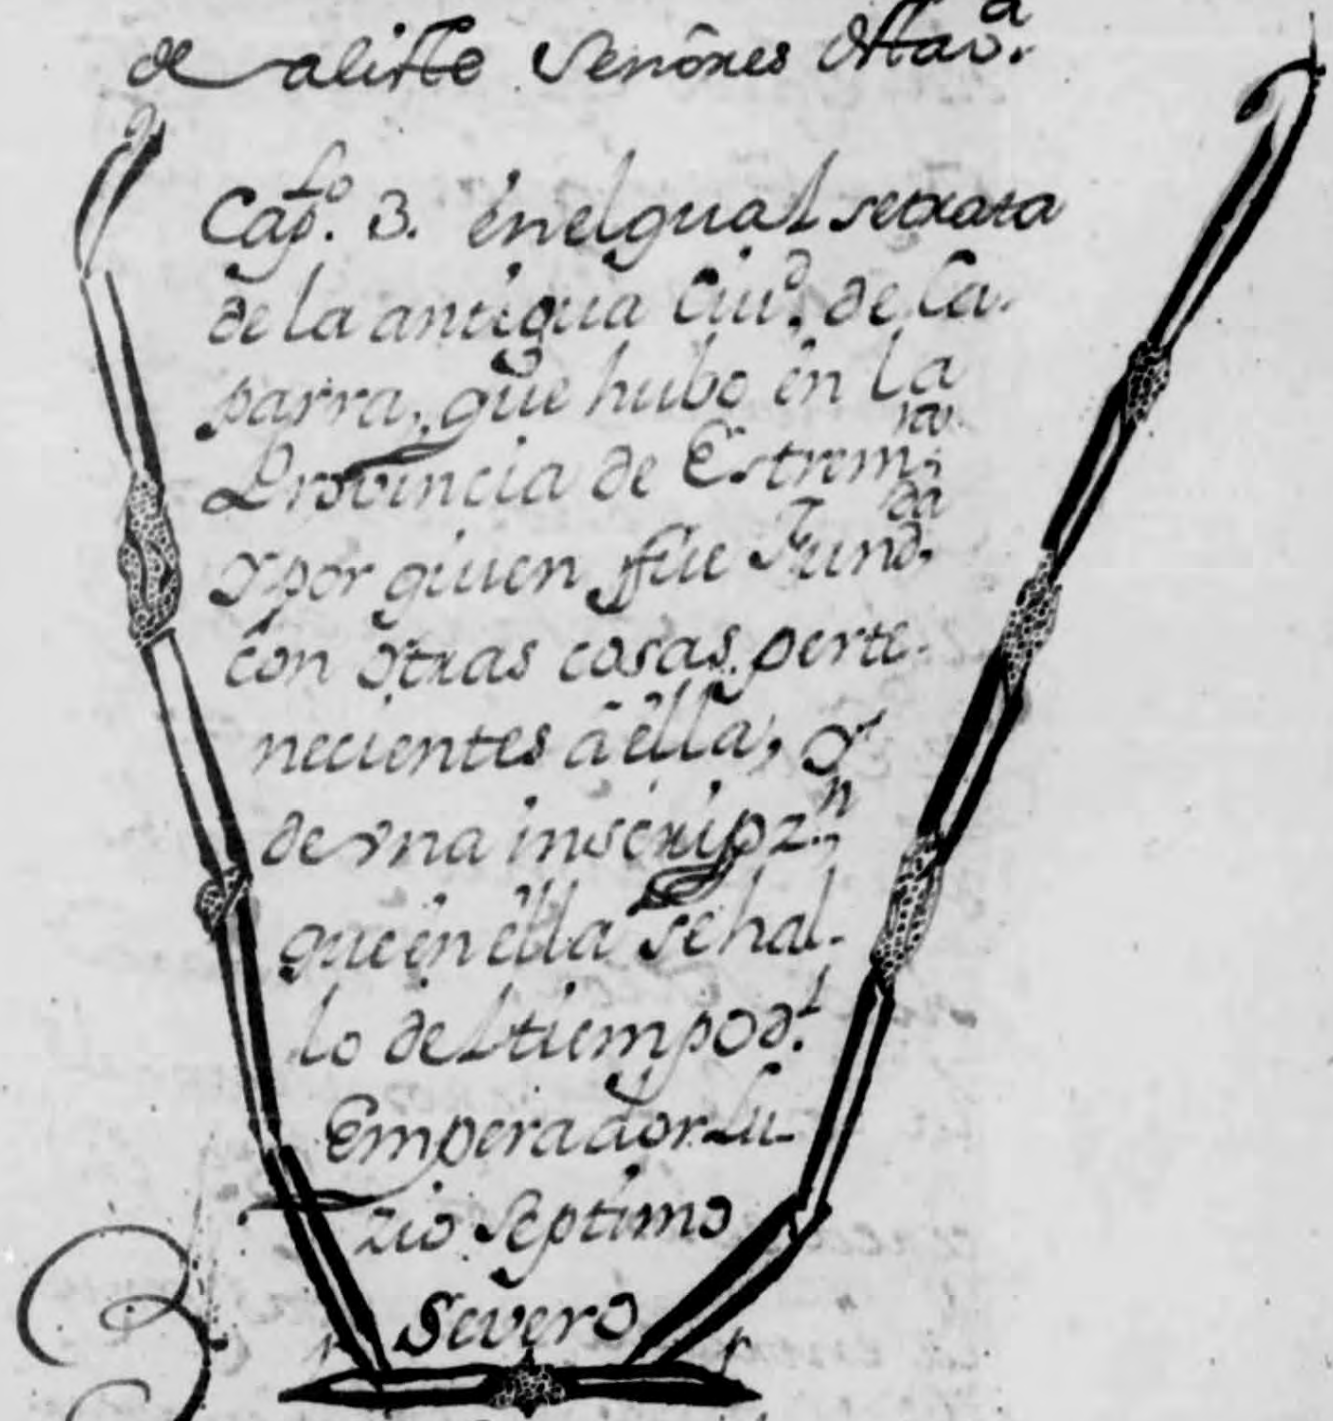 de aliste Señores
Cap.lo 3. en el qual se trata
de la antigua Ciu.d de Ca-
parra, que hubo en la
Provincia de Estrem.ra
y por quien fue Fund.da
con otras cosas perte-
necientes â êlla, y
de vna inscripz.n
que en êlla se hal-
lo del tiempo d.l
Emperador Lu-
zio Septimo
Severo